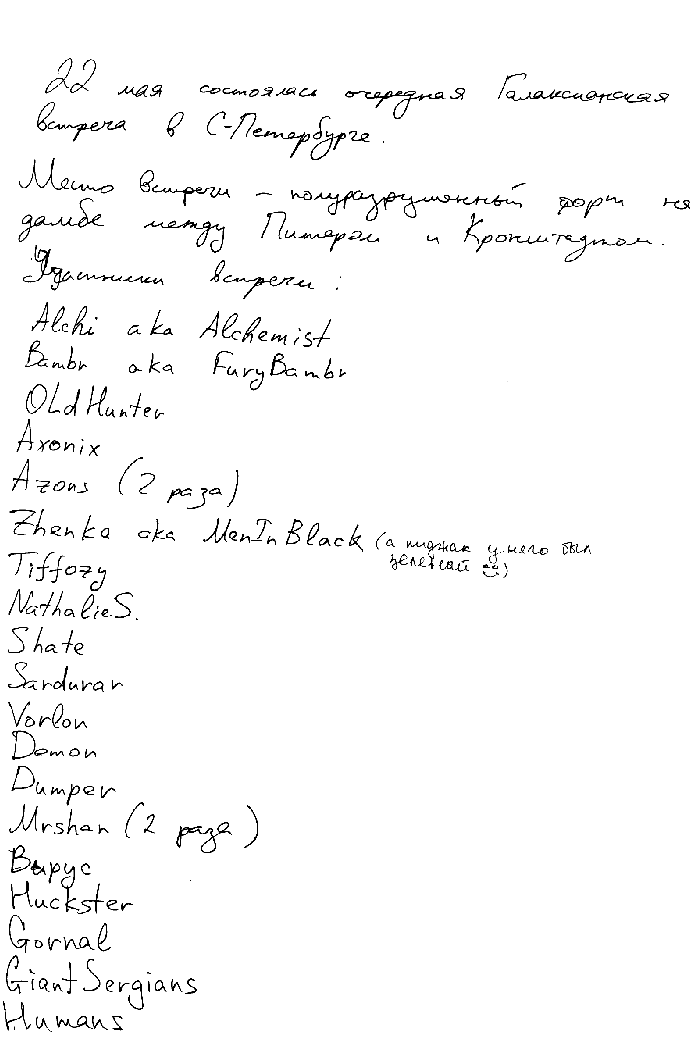 22 мая состоялась очередная Галаксианская
встреча в С-Петербурге.
Место встречи – полуразрушенный форт на
дамбе между Питером и Кронштадтом.
Участники встречи:
Alchi aka Alchemist
Bambr aka FuryBambr
OLdHunter
Axonix
Azons (2 раза)
Zhenka aka MenInBlack (а пиджак у него был
зеленый)
Tiffozy
NathalieS.
Shate
Sardurar
Vorlon
Domon
Dumper
Mrshan (2 раза)
Вырус
Huckster
Gornal
GiantSergians
Humans